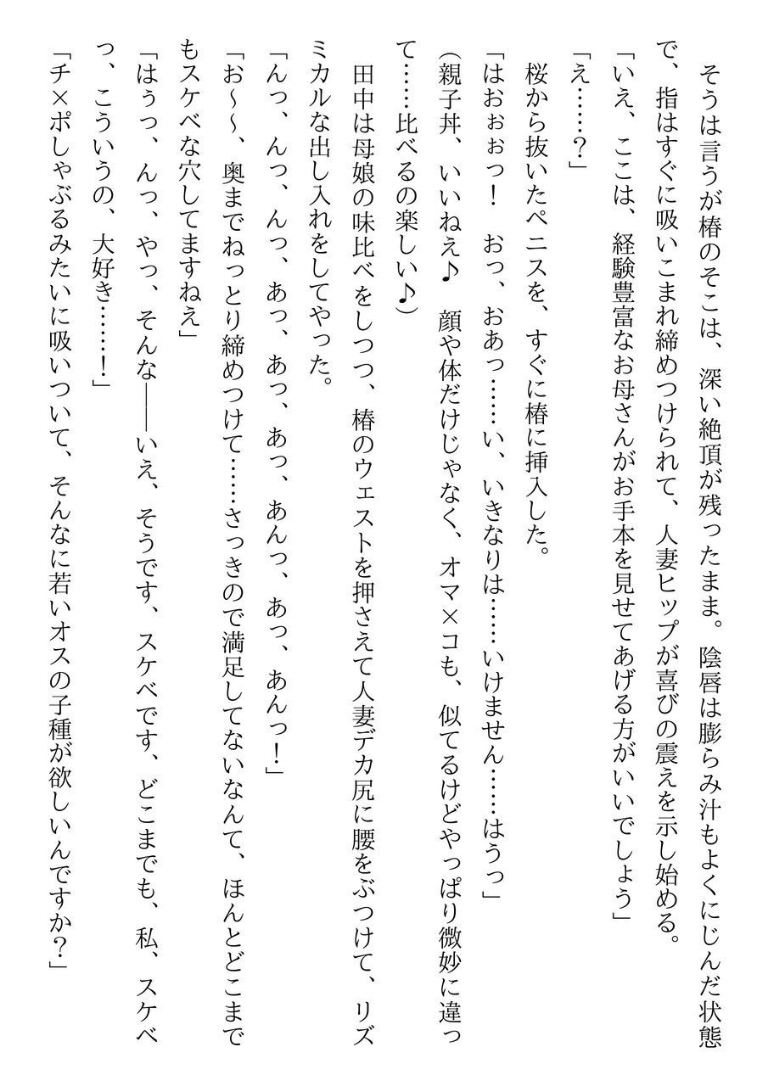 そうは言うが椿のそこは、深い絶頂が残ったまま。陰唇は膨らみ汁もよくにじんだ状態
で、指はすぐに吸いこまれ締めつけられて、人妻ヒップが喜びの震えを示し始める。
「いえ、ここは、経験豊富なお母さんがお手本を見せてあげる方がいいでしょう」
「え……？」
桜から抜いたペニスを、すぐに椿に挿入した。
「はおぉぉっ！　おっ、おあっ……い、いきなりは……いけません……はうっ」
（親子丼、いいねえ♪　顔や体だけじゃなく、オマ×コも、似てるけどやっぱり微妙に違っ
て……比べるの楽しい♪）
田中は母娘の味比べをしつつ、椿のウェストを押さえて人妻デカ尻に腰をぶつけて、リズ
ミカルな出し入れをしてやった。
「んっ、んっ、んっ、あっ、あっ、あっ、あんっ、あっ、あんっ！」
「お～～、奥までねっとり締めつけて……さっきので満足してないなんて、ほんとどこまで
もスケベな穴してますねえ」
「はぅっ、んっ、やっ、そんな――いえ、そうです、スケベです、どこまでも、私、スケベ
っ、こういうの、大好き……！」
「チ×ポしゃぶるみたいに吸いついて、そんなに若いオスの子種が欲しいんですか？」